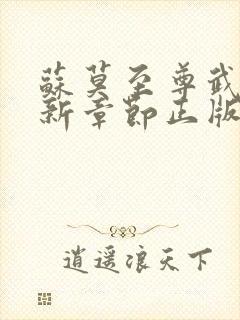 蘇莫至尊武
新章節正版
逍遥浪天下